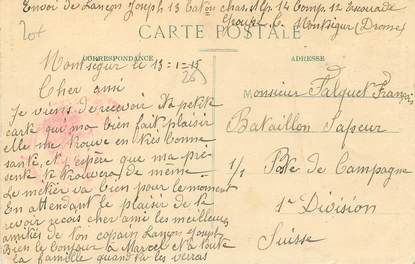 Envoi de Lançon Joseph 13 Baton chas. Alp. 14 Comp 12 Escouade
Groupe C. Montségur (Drome)
CARTE POSTALE
CORRESPONDANCE
ADRESSE
Montségur le 13-1-15
Cher ami
Je viens de recevoir ta petite
carte qui ma bien fait plaisir
elle me trouve en très bonne
santé, et j'epère que ma pré-
sente te trouvera de meme.
Le métier va bien pour le moment
En attendant le plaisir de te
revoir recois cher ami les meilleures
amitiés de ton copain Lançon Joseph
Bien le bonjour a Marcel et a toute
la famille quand tu les verras
Monsieur Falquet Franç
Bataillon Sapeur
1/1 Poste de Campagne
1e Division
Suisse